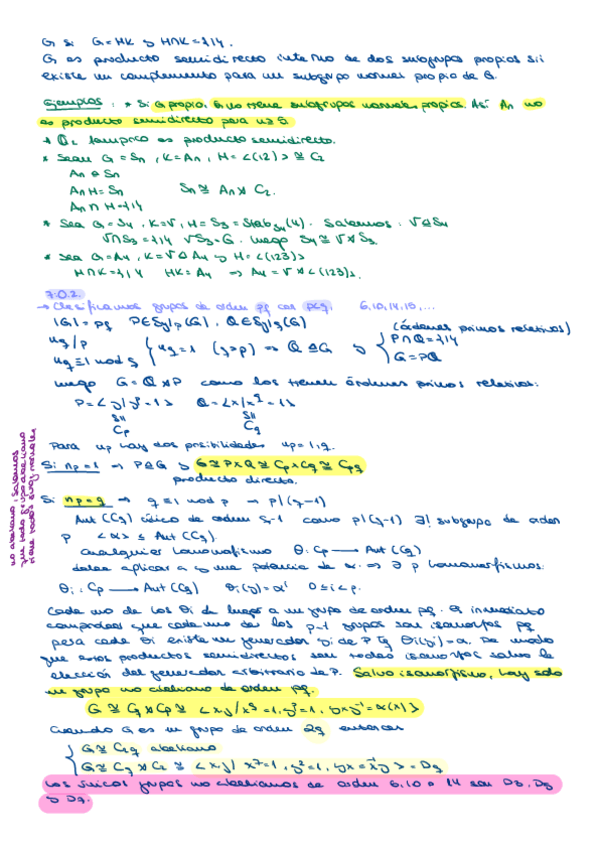 G si G=HK y H∩K={1}.
G es producto semidirecto interno de dos subgrupos propios sii
existe un complemento para un subgrupo normal propio de G.
Ejemplos: * Si G propio, G no tiene subgrupos normales propios. Así An no
es producto semidirecto para n≥5
* Q₂ tampoco es producto semidirecto.
* Sean G=Sn, K=An, H=<(12)>≅C₂
An⊴Sn
AnH=Sn Sn≅An⋊C₂.
An∩H={1}
* Sea G=S₄, K=V, H=S₃=Stab_S₄(4). Sabemos: V⊴S₄
V∩S₃={1} VS₃=G. Luego S₄≅V⋊S₃
* Sea G=A₄, K=V⊴A₄ y H=<(123)>
H∩K={1} HK=A₄ ⇒ A₄=V⋊<(123)>.
7.0.2.
→ Clasificamos grupos de orden pq con p<q. 6,10,14,15,...
|G|=pq P∈Syl_p(G), Q∈Syl_q(G) (órdenes primos relativos)
n_q/p { n_q=1 (q>p) ⇒ Q⊴G y { P∩Q={1}
n_q≡1 mod q G=PQ
Luego G=Q⋊P como los tienen órdenes primos relativos:
P=<y/y^p=1> Q=<x/x^q=1>
C_p C_q
Para n_p hay dos posibilidades n_p=1,q.
Si n_p=1 → P⊴G y G≅P×Q≅C_p×C_q≅C_pq
producto directo.
no abeliano, sabemos
que todo grupo abeliano
tiene todos subg normales
Si n_p=q → q≡1 mod p → p/(q-1)
Aut(C_q) cíclico de orden q-1 como p/(q-1) ∃! subgrupo de orden
p <α>≤Aut(C_q).
Cualquier homomorfismo θ: C_p → Aut(C_q)
debe aplicar a y una potencia de α. ⇒ ∃ p homomorfismos:
θi: C_p → Aut(C_q) θi(y)=αⁱ 0≤i<p.
Cada uno de los θi da lugar a un grupo de orden pq. Es inmediato
comprobar que cada uno de los p-1 grupos son isomorfos pq
para cada θi existe un generador yi de P tq θi(yi)=α. De modo
que estos productos semidirectos son todos isomorfos salvo la
elección del generador arbitrario de P. Salvo isomorfismo, hay solo
un grupo no abeliano de orden pq.
G≅C_q⋊C_p≅<x,y/x^q=1, y^p=1, yxy⁻¹=α(x)>
Cuando G es un grupo de orden 2q entonces
{ G≅C₂q abeliano
G≅C_q⋊C₂≅<x,y/x^q=1, y²=1, yx=x⁻¹y>=D_q
Los únicos grupos no abelianos de orden 6,10 o 14 son D₃, D₅
y D₇.